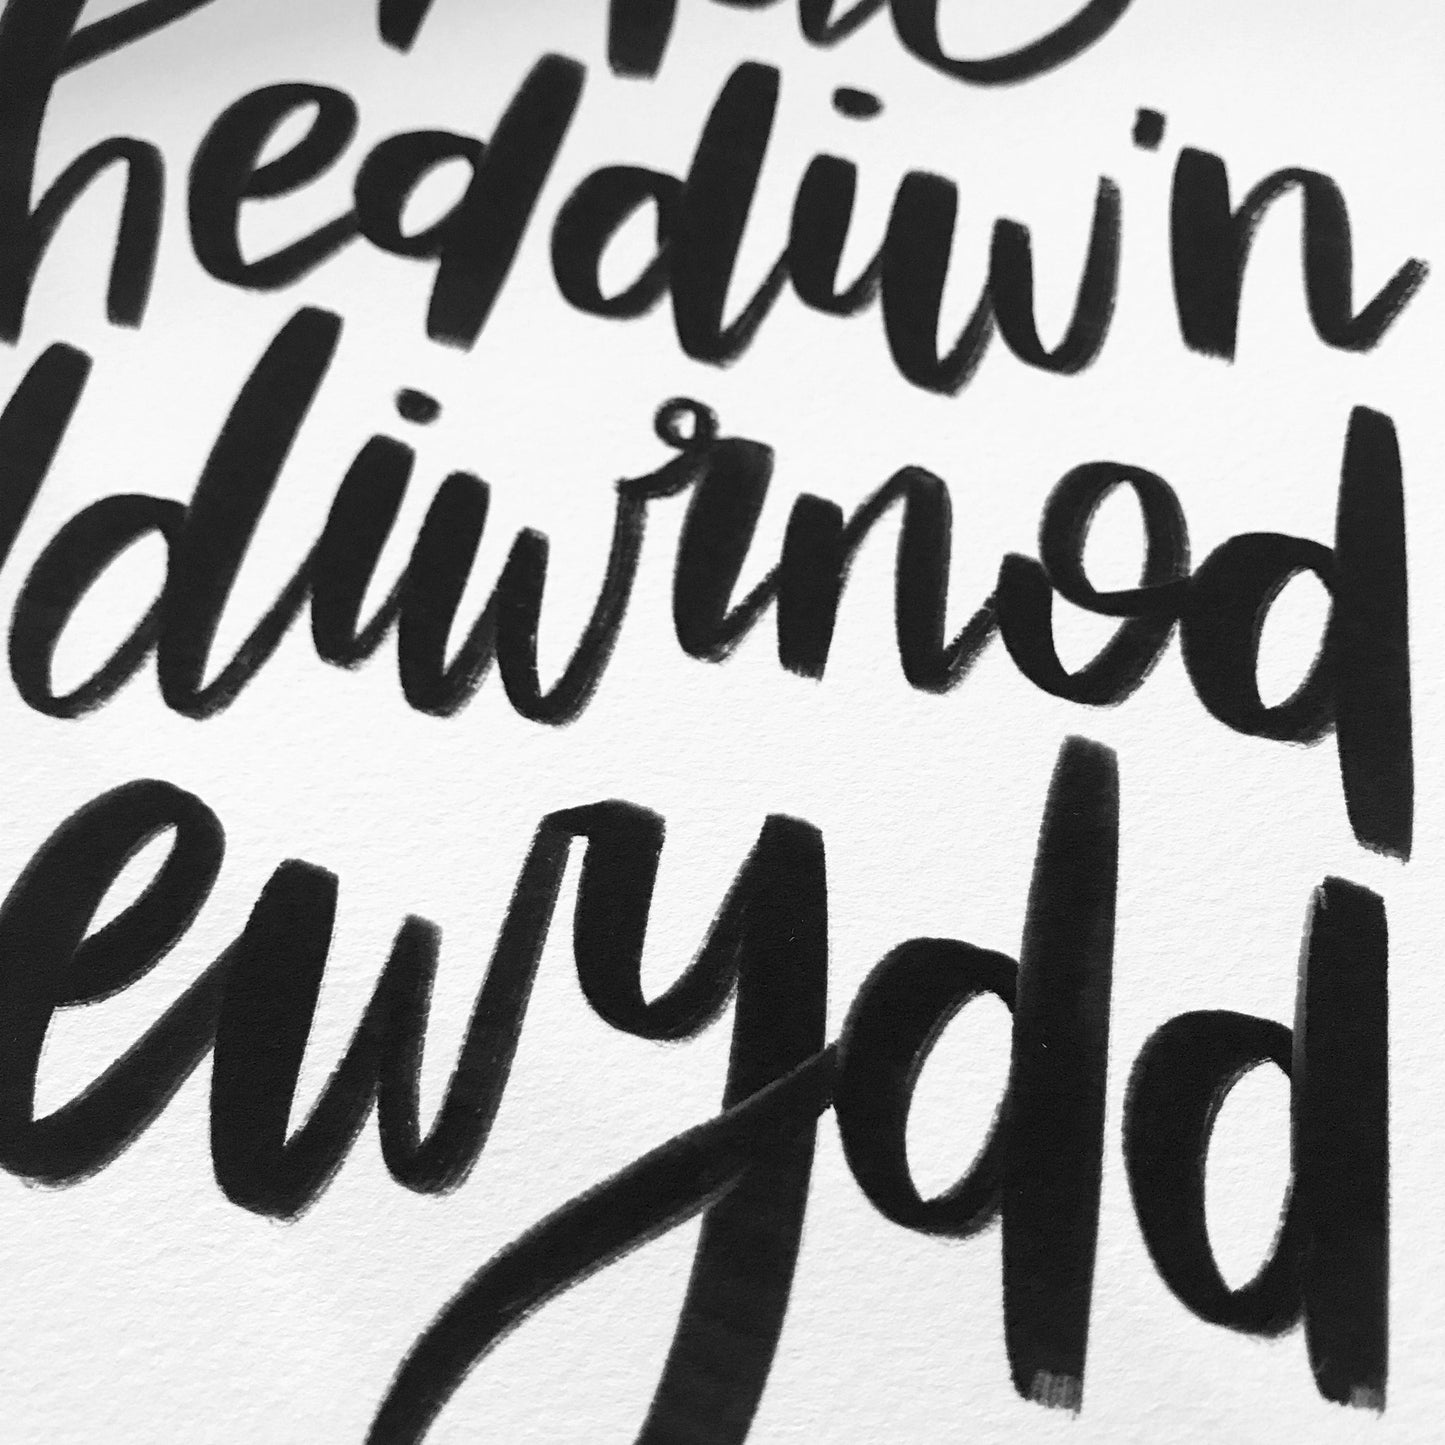 heddiw'n
ddiwrnod
ewydd